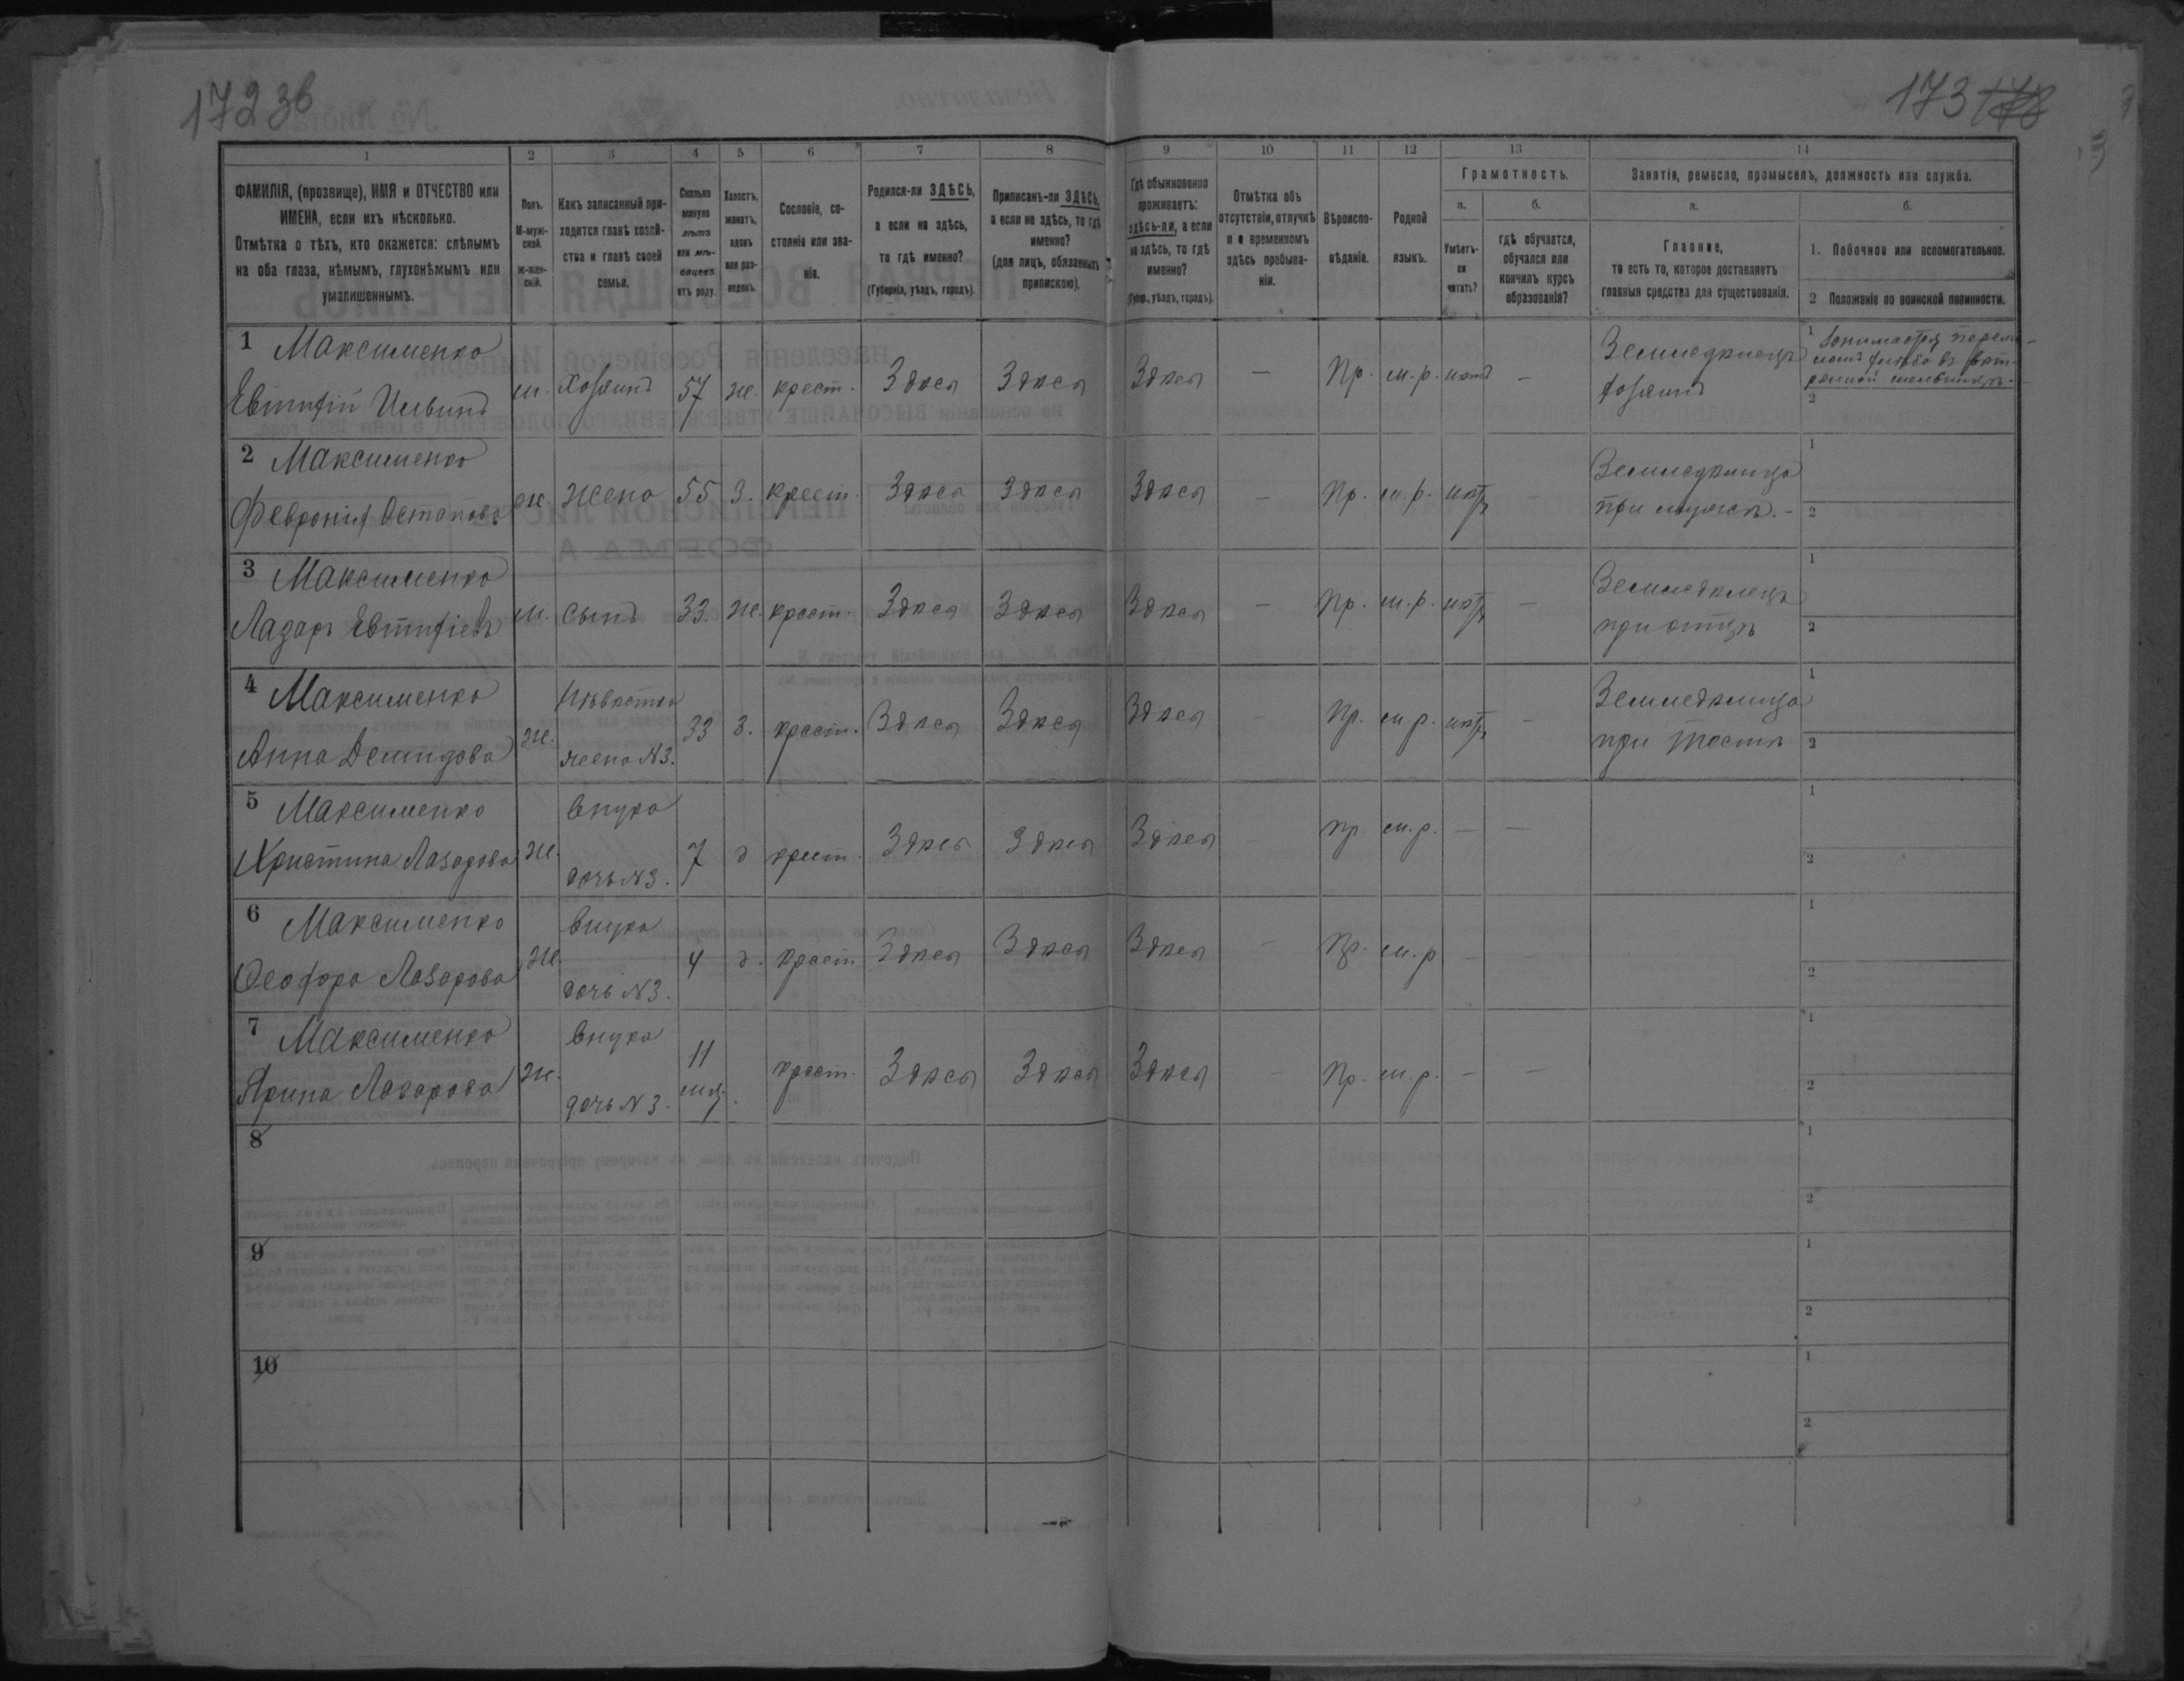 172 зв
173 178
1 2 3 4 5 6 7 8 9 10 11 12 13 14
ФАМИЛІЯ, (прозвище), ИМЯ и ОТЧЕСТВО или
ИМЕНА, если ихъ нѣсколько.
Отмѣтка о тѣхъ, кто окажется: слѣпымъ
на оба глаза, нѣмымъ, глухонѣмымъ или
умалишеннымъ.
Полъ.
М-муж-
ской.
ж-жен-
скій.
Какъ записанный при-
ходится главѣ хозяй-
ства и главѣ своей
семьи.
Сколько
минуло
лѣтъ
или мѣ-
сяцевъ
отъ роду.
Холостъ,
женатъ,
вдовъ
или раз-
веденъ.
Сословіе, со-
стояніе или зва-
ніе.
Родился-ли ЗДѢСЬ,
а если не здѣсь,
то гдѣ именно?
(Губернія, уѣздъ, городъ).
Приписанъ-ли ЗДѢСЬ,
а если не здѣсь, то гдѣ
именно?
(для лицъ, обязанныхъ
припискою).
Гдѣ обыкновенно
проживаетъ:
здѣсь-ли, а если
не здѣсь, то гдѣ
именно?
(Губер., уѣздъ, городъ).
Отмѣтка объ
отсутствіи, отлучкѣ
и о временномъ
здѣсь пребыва-
ніи.
Вѣроиспо-
вѣданіе.
Родной
языкъ.
Грамотность.
а.
Умѣетъ-
ли
читать?
б.
гдѣ обучается,
обучался или
кончилъ курсъ
образованія?
Занятіе, ремесло, промыселъ, должность или служба.
а.
Главное,
то есть то, которое доставляетъ
главныя средства для существованія.
б.
1. Побочное или вспомогательное.
2 Положеніе по воинской повинности.
1 Максименко
Евтифій Ильинъ
м. хозяинъ 57 ж. крест. Здѣсь Здѣсь Здѣсь — Пр. м.р. нѣтъ —
Земледѣлецъ
хозяинъ
1 Занимается
2
2 Максименко
Февронія Остапова
ж. жена 55 з. крест. Здѣсь Здѣсь Здѣсь — Пр. м.р. нѣтъ
Земледѣлица
при мужѣ. -
1
2
3 Максименко
Лазарь Евтифіевъ
м. сынъ 33. ж. крест. Здѣсь Здѣсь Здѣсь — Пр. м.р. нѣтъ —
Земледѣлецъ
при отцѣ
1
2
4 Максименко
Анна Демидова
ж.
Невѣстка
жена N3.
33 з. крест. Здѣсь Здѣсь Здѣсь — Пр. м.р. нѣтъ —
Земледѣлица
при тестѣ
1
2
5 Максименко
Христина Лазарова
ж.
внука
дочь N3.
7 д крест. Здѣсь Здѣсь Здѣсь — пр м.р. — —
1
2
6 Максименко
Феодора Лазарова
ж.
внука
дочь N3.
4 д. крест. Здѣсь Здѣсь Здѣсь — Пр. м.р —
1
2
7 Максименко
Ярина Лазарова
ж.
внука
дочь N3.
11
мѣс.
крест. Здѣсь Здѣсь Здѣсь — Пр. м.р. — —
1
2
8
1
2
9
1
2
10
1
2